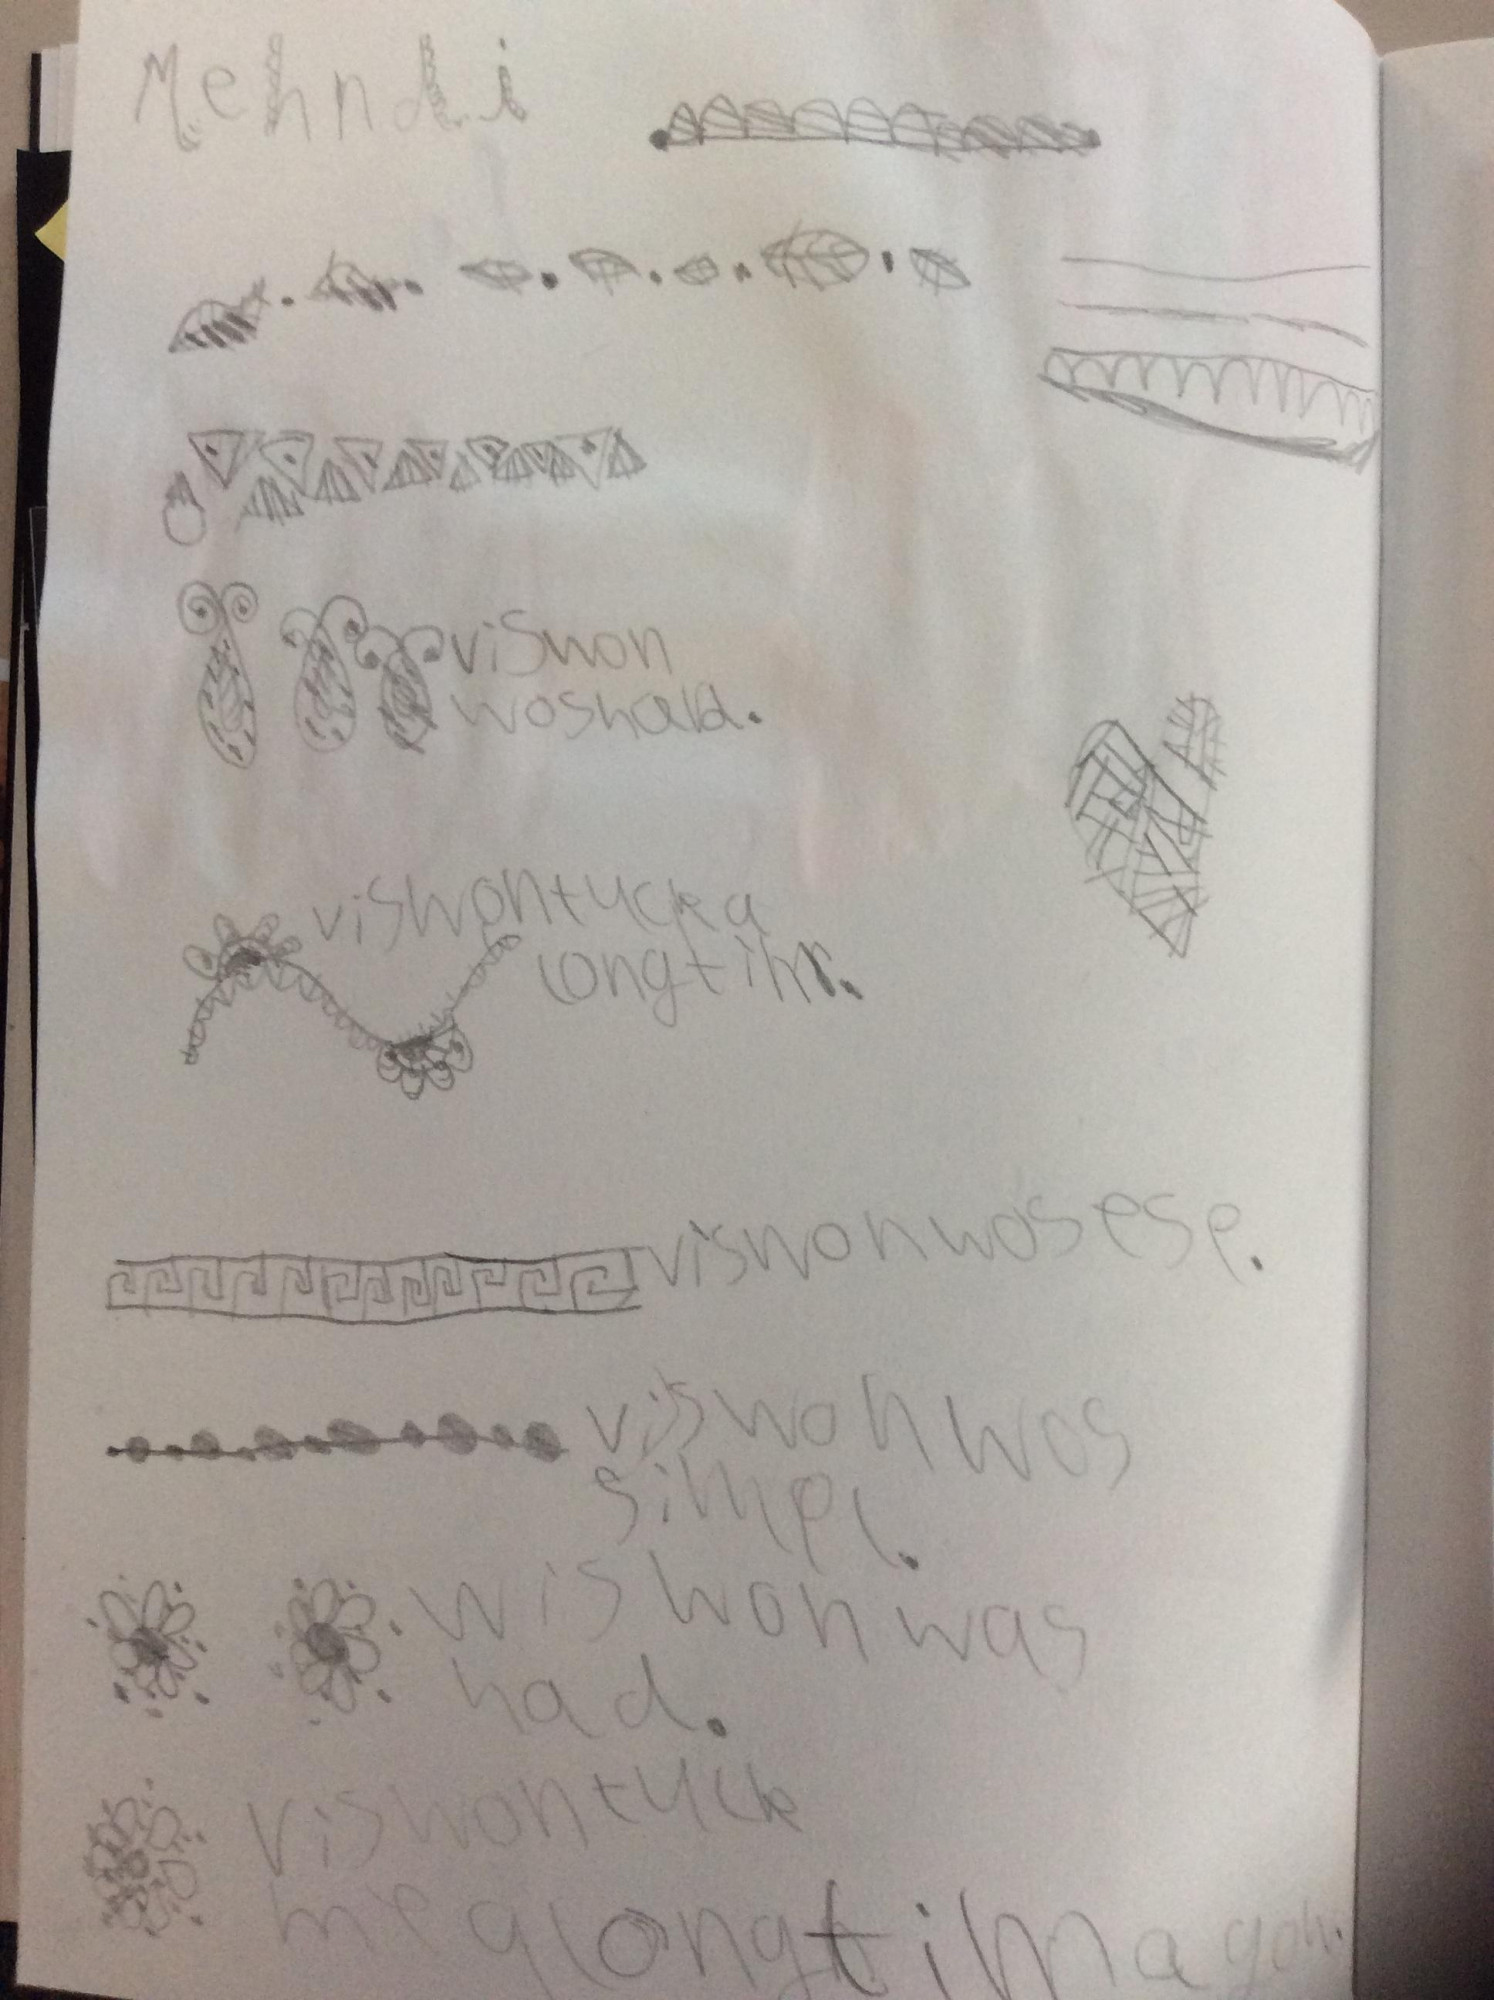 Mehndi
viswon
woshald.
viswontucka
longtim.
viswonwosese.
viswonwos
simpl.
wiswonwas
had.
viswontuck
mealongtimagon.